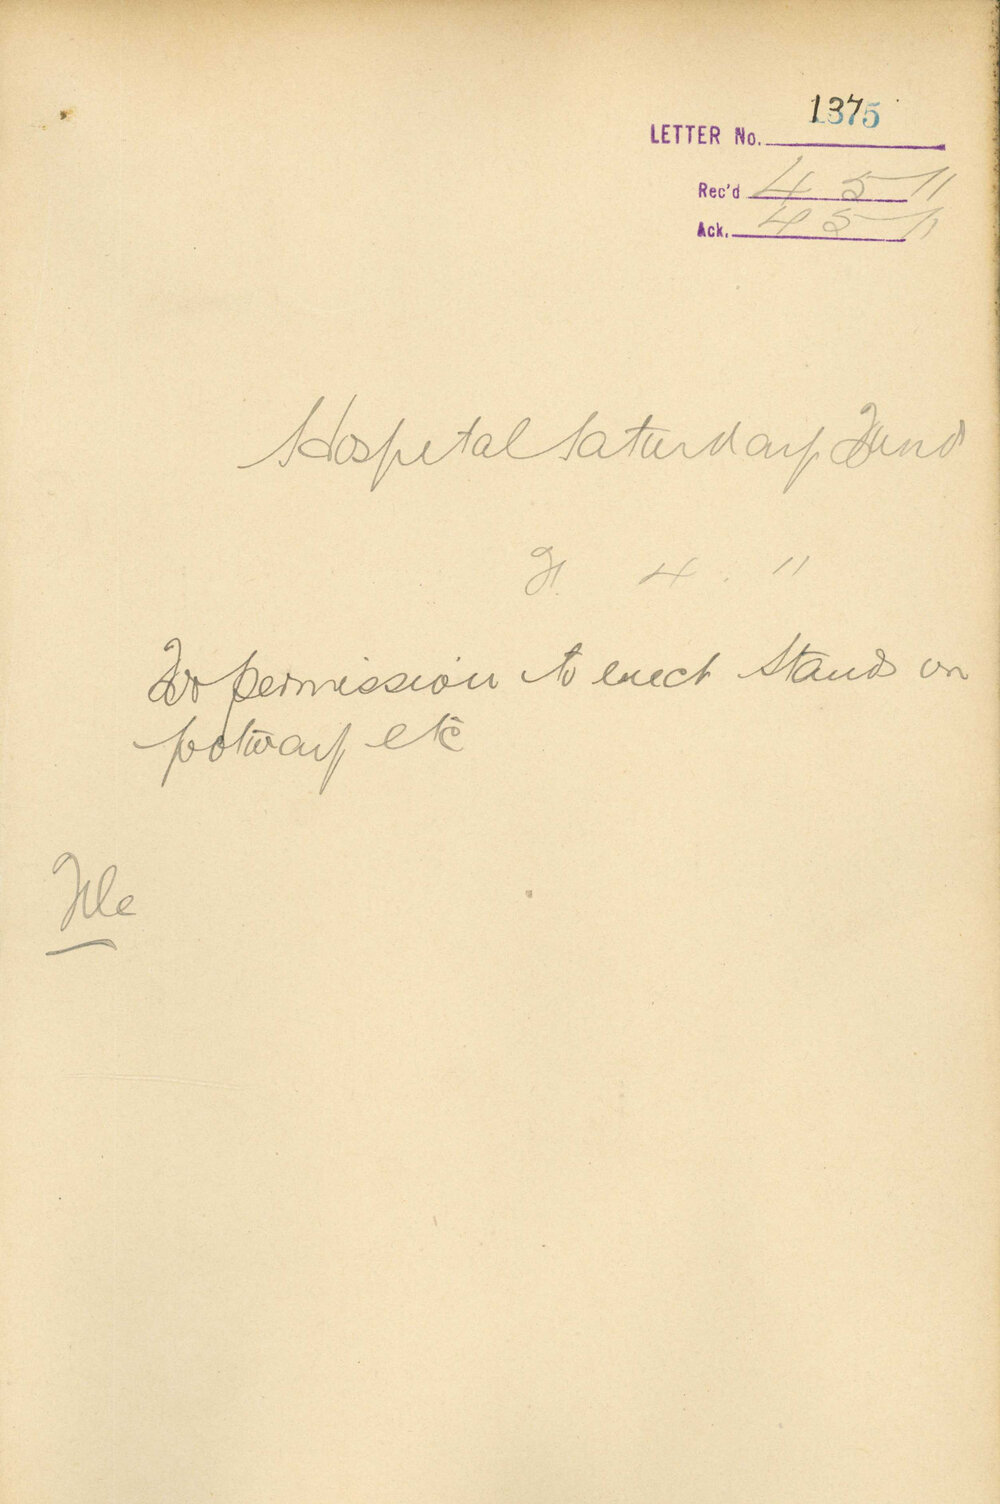 1375
LETTER No.
Rec'd 4 5 11
Ack. 4 5 11
Hospital Saturday Fund
4 . 11
For permission to erect stands on
footway etc
File